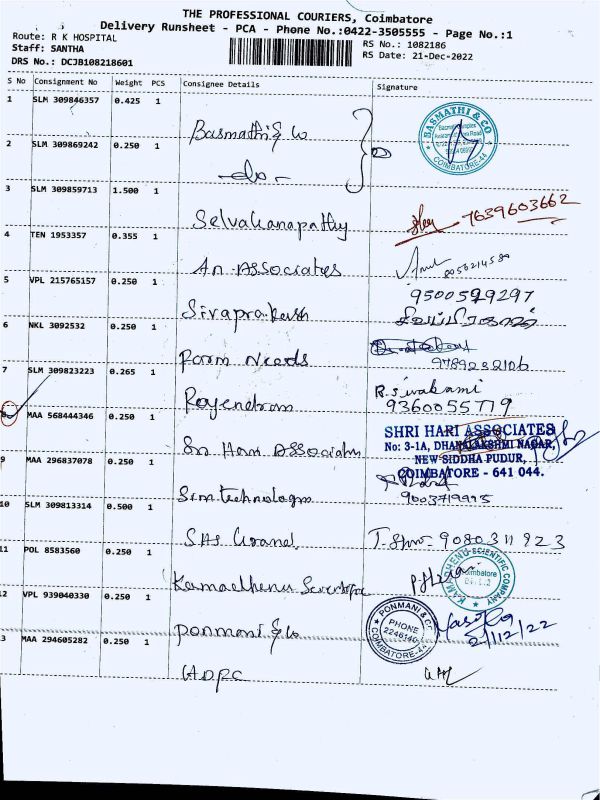 THE PROFESSIONAL COURIERS, Coimbatore
Delivery Runsheet - PCA - Phone No.:0422-3505555 - Page No.:1
Route: R K HOSPITAL
RS No.: 1082186
Staff: SANTHA
RS Date: 21-Dec-2022
DRS No.: DCJB108218601
S No Consignment No Weight PCS Consignee Details Signature
1 SLM 309846357 0.425 1
Basmathi & Co
BASMATHI & CO
COIMBATORE-44
2 SLM 309869242 0.250 1
-do-
3 SLM 309859713 1.500 1
Selvakanapathy 7639603662
4 TEN 1953357 0.355 1
An Associates
5 VPL 215765157 0.250 1
9500529297
Sivaprakash சிவப்பிரகாஷ்
6 NKL 3092532 0.250 1
Room Needs 9789232106
7 SLM 309823223 0.265 1
R. Sivakami
Rajendran 9360055779
8 MAA 568444346 0.250 1
SHRI HARI ASSOCIATES
No: 3-1A, DHANALAKSHMI NAGAR,
Sri Hari Associates
NEW SIDDHA PUDUR,
COIMBATORE - 641 044.
9 MAA 296837078 0.250 1
Sim technologies 9003719995
10 SLM 309813314 0.500 1
SAS Grand 9080311923
11 POL 8583560 0.250 1
Kamadhenu Scientific
KAMADHENU SCIENTIFIC COMPANY
Coimbatore
12 VPL 939040330 0.250 1
Ponmani & Co
PONMANI & CO
PHONE
2246140
COIMBATORE-44
21/12/22
13 MAA 294605282 0.250 1
HDFC